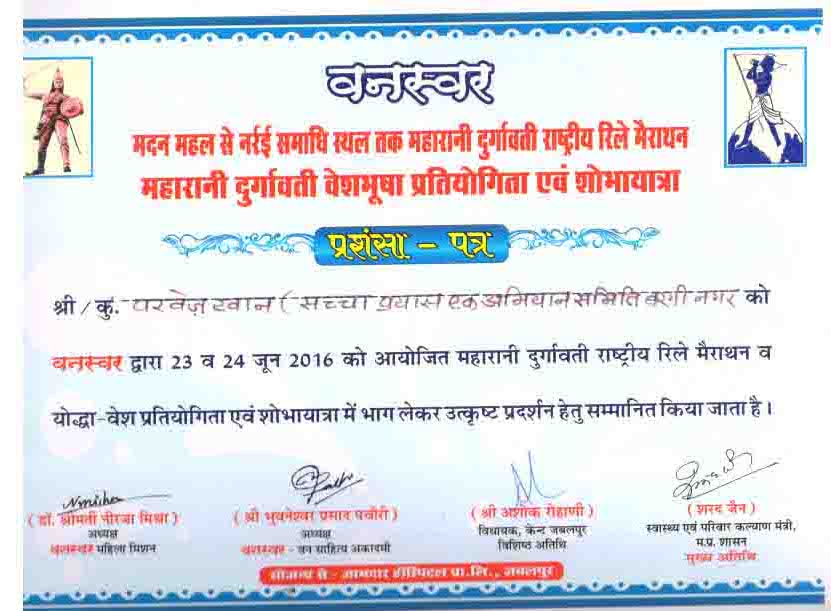 वनस्वर
मदन महल से नर्रई समाधि स्थल तक महारानी दुर्गावती राष्ट्रीय रिले मैराथन
महारानी दुर्गावती वेशभूषा प्रतियोगिता एवं शोभायात्रा
प्रशंसा - पत्र
श्री / कु. परवेज़ खान ( सच्चा प्रयास एक अभियान समिति बरगी नगर को
वनस्वर द्वारा 23 व 24 जून 2016 को आयोजित महारानी दुर्गावती राष्ट्रीय रिले मैराथन व
योद्धा-वेश प्रतियोगिता एवं शोभायात्रा में भाग लेकर उत्कृष्ट प्रदर्शन हेतु सम्मानित किया जाता है।
( डॉ. श्रीमती नीरजा मिश्रा )
अध्यक्ष
वनस्वर महिला मिशन
( श्री भुवनेश्वर प्रसाद पचौरी )
अध्यक्ष
वनस्वर - वन साहित्य अकादमी
( श्री अशोक रोहाणी )
विधायक, केन्ट जबलपुर
विशिष्ठ अतिथि
( शरद जैन )
स्वास्थ्य एवं परिवार कल्याण मंत्री,
म.प्र. शासन
मुख्य अतिथि
सौजन्य से - जामदार हॉस्पिटल प्रा.लि., जबलपुर